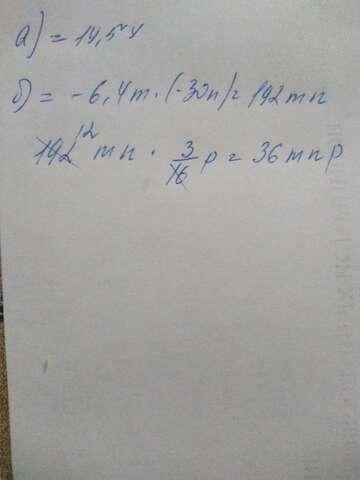 а) = 14,5xy
б) = -6,4m · (-30n) = 192mn
192 12 mn · 3/16 p = 36mnp